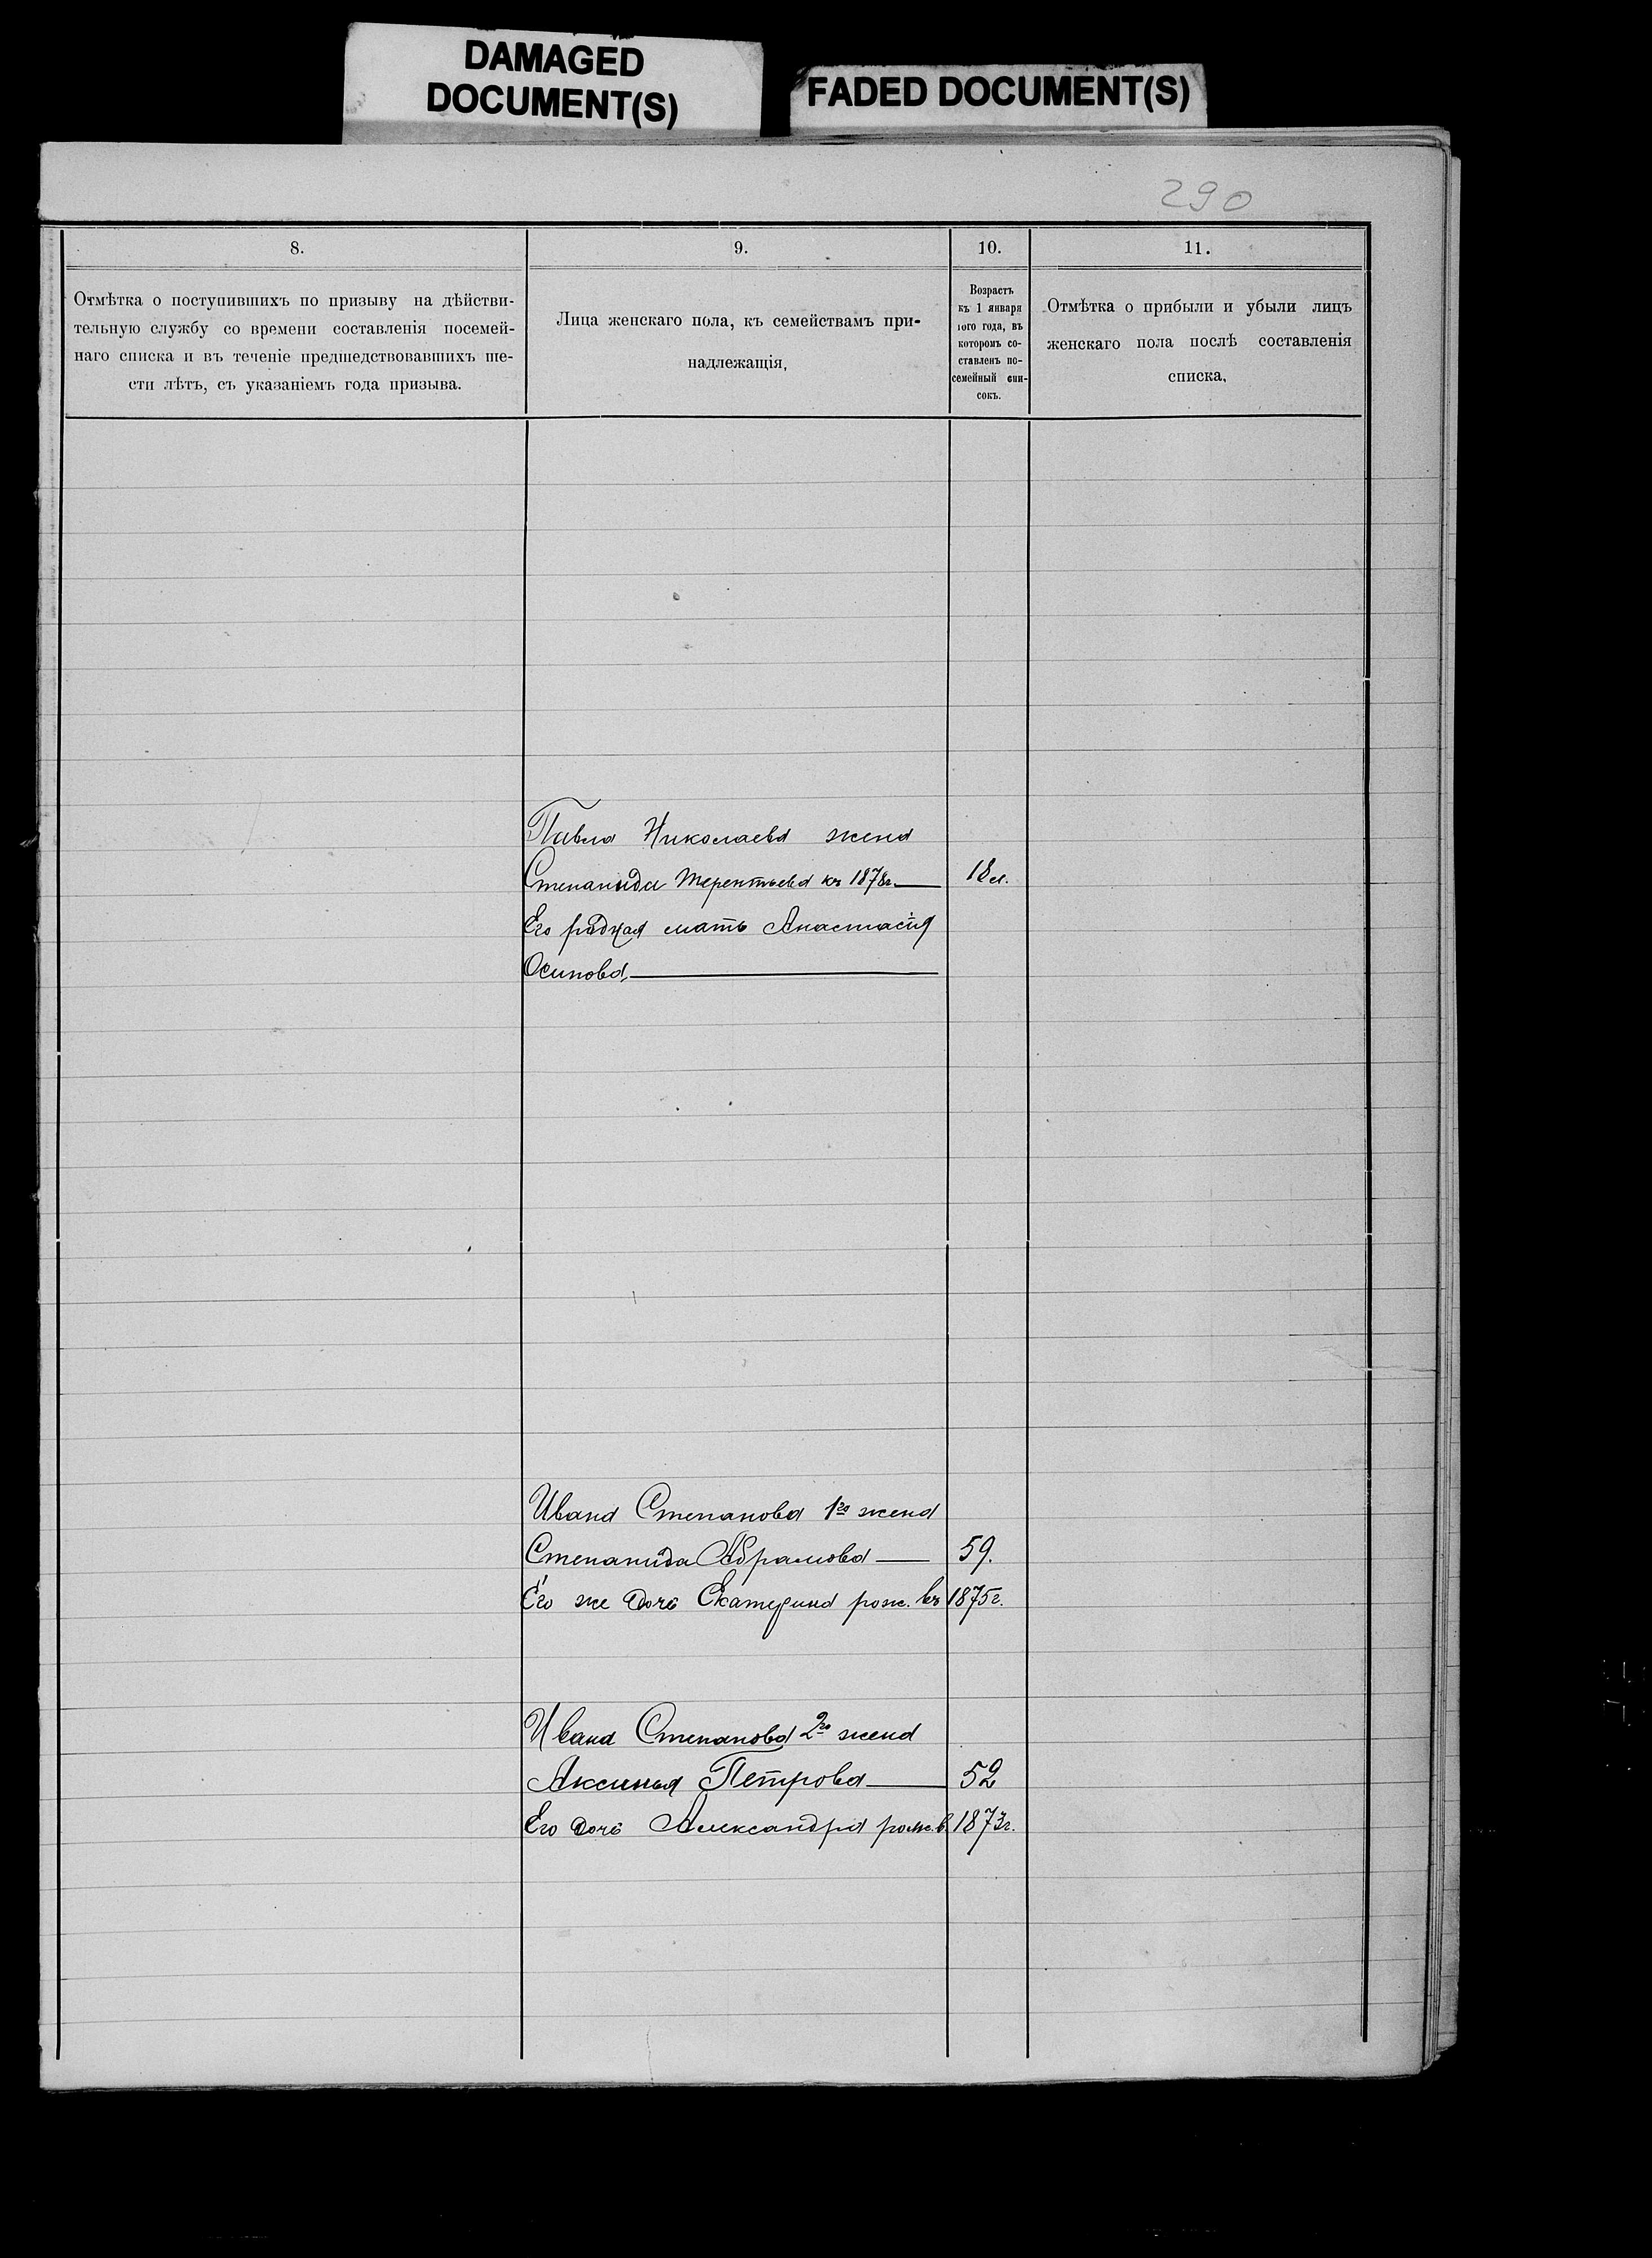 DAMAGED
DOCUMENT(S)
FADED DOCUMENT(S)
290
8.
9.
10.
11.
Отмѣтка о поступившихъ по призыву на дѣйстви-
тельную службу со времени составленія посемей-
наго списка и въ теченіе предшедствовавшихъ ше-
сти лѣтъ, съ указаніемъ года призыва.
Лица женскаго пола, къ семействамъ при-
надлежащія,
Возрастъ
къ 1 января
того года, въ
которомъ со-
ставленъ по-
семейный спи-
сокъ.
Отмѣтка о прибыли и убыли лицъ
женскаго пола послѣ составленія
списка,
Павла Николаева жена
Степанида Терентьева къ 1878г. 18 л.
Его родная мать Анастасія
Осипова,
Ивана Степанова 1го жена
Степанида Абрамова 59.
Его же дочь Екатерина рож. въ 1875г.
Ивана Степанова 2го жена
Аксинья Петрова 52
Его дочь Александра рожд. в. 1873г.